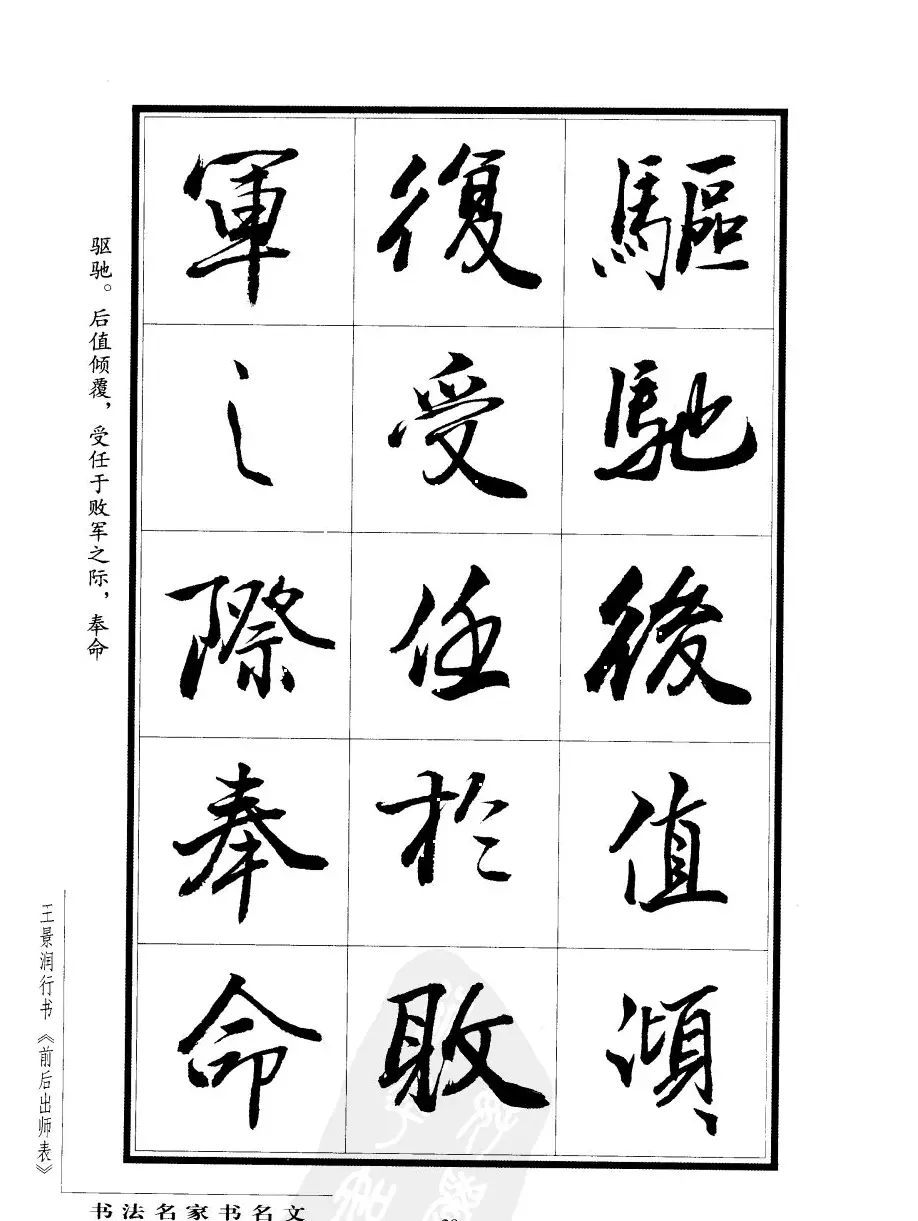 驅馳後值傾
復受任於敗
軍之際奉命
驱驰。后值倾覆，受任于败军之际，奉命
王景润行书《前后出师表》
书法名家书名文